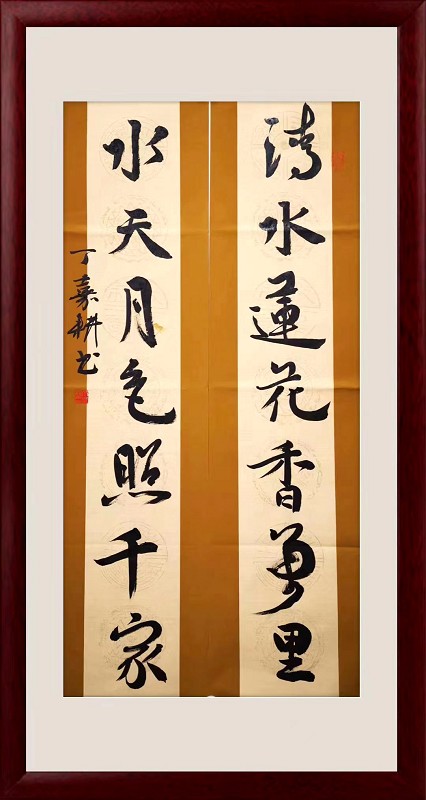 清水蓮花香萬里
水天月色照千家
丁嘉耕书